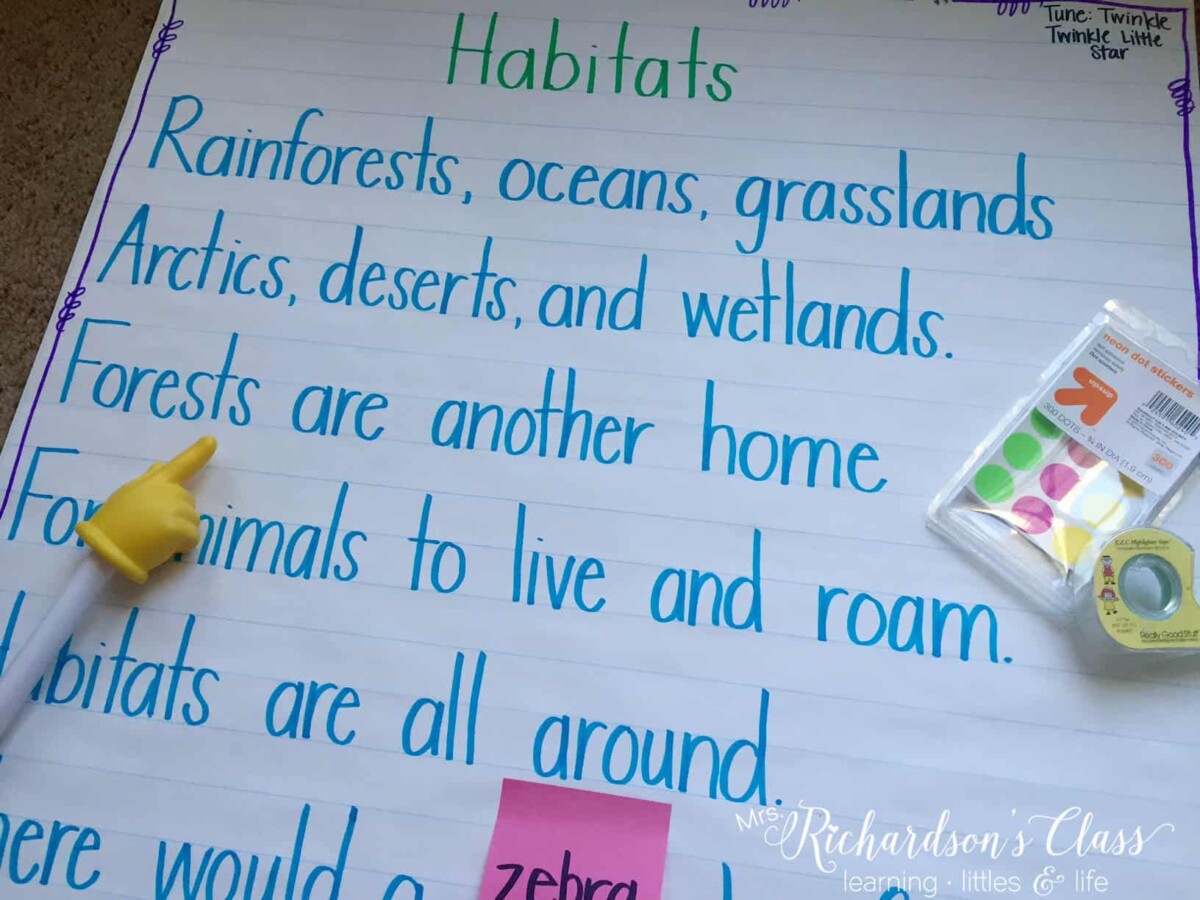 Tune: Twinkle
Twinkle Little
Star
Habitats
Rainforests, oceans, grasslands
Arctics, deserts, and wetlands.
Forests are another home
For animals to live and roam.
Habitats are all around.
would a zebra
neon dot stickers
up&up
300 DOTS – ¾ IN DIA (1.9 cm)
300
Highlighter Tape
Really Good Stuff
Mrs. Richardson's Class
learning · littles & life